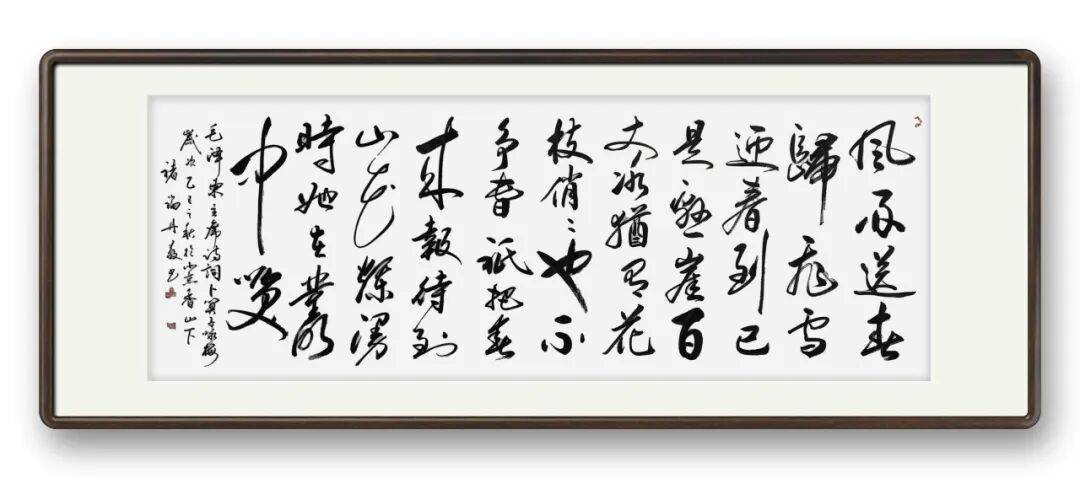 風雨送春
歸飛雪
迎春到已
是懸崖百
丈冰猶有花
枝俏〻也不
爭春祇把春
來報待到
山花爛漫
時她在叢
中笑
毛泽東主席诗詞卜算子咏梅
歲次乙巳之秋於香山下